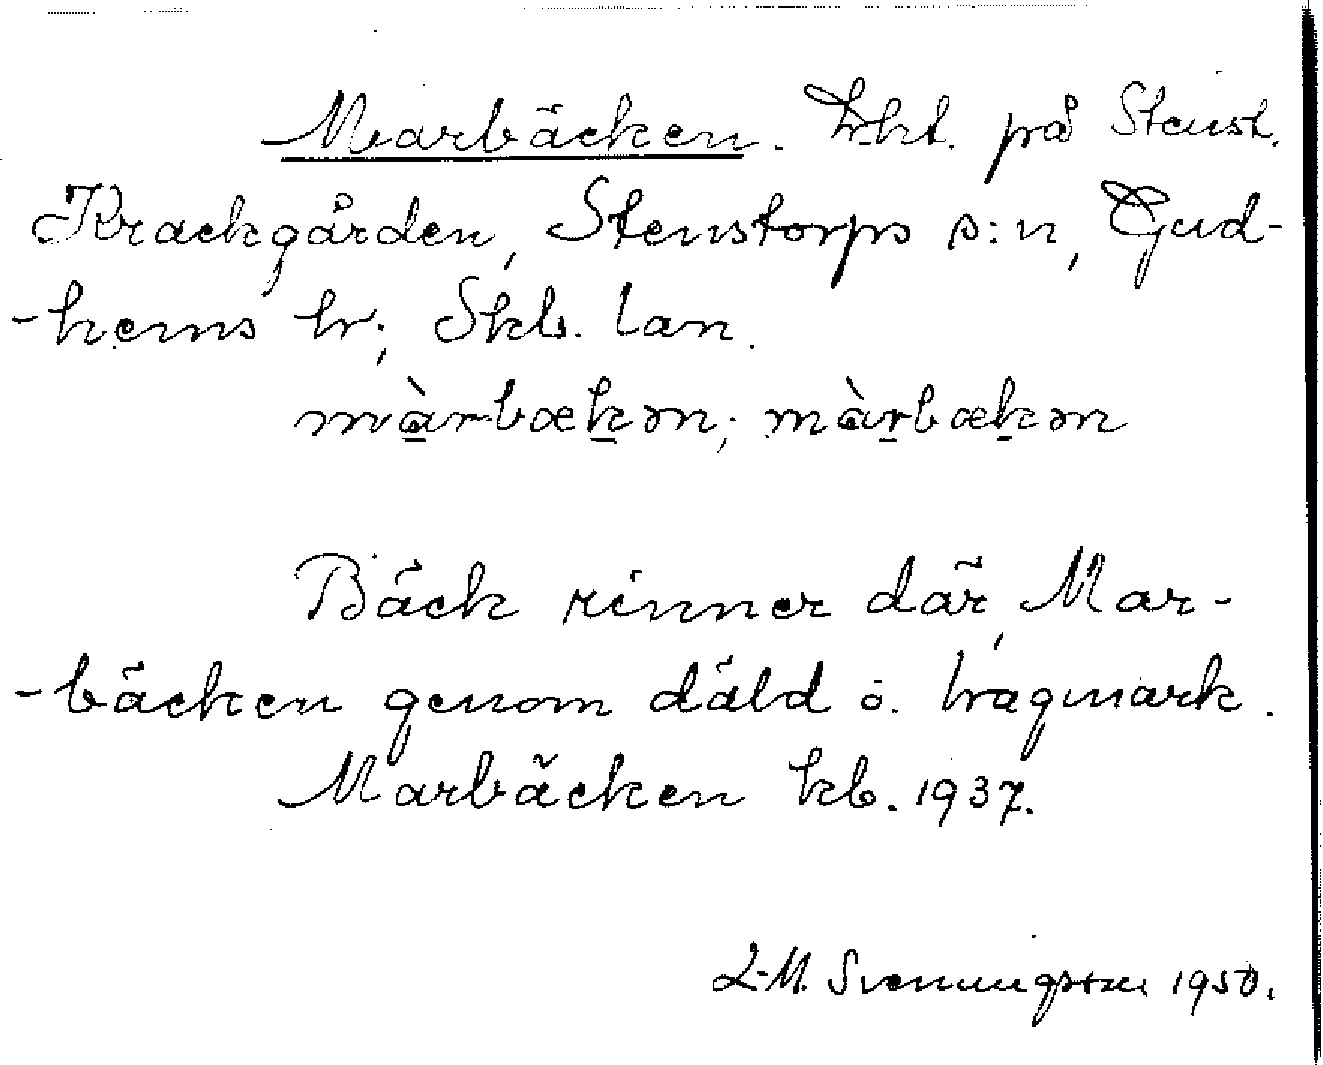 Marbäcken. Trkt. på Stenst.
Krackgården, Stenstorps s:n, Gud-
-hems hr; Skb. län.
màrbækən; màrbækən
Bäck rinner där, Mar-
-bäcken genom däld o. hagmark.
Marbäcken kb. 1937.
L-M. Svenningsson 1950.